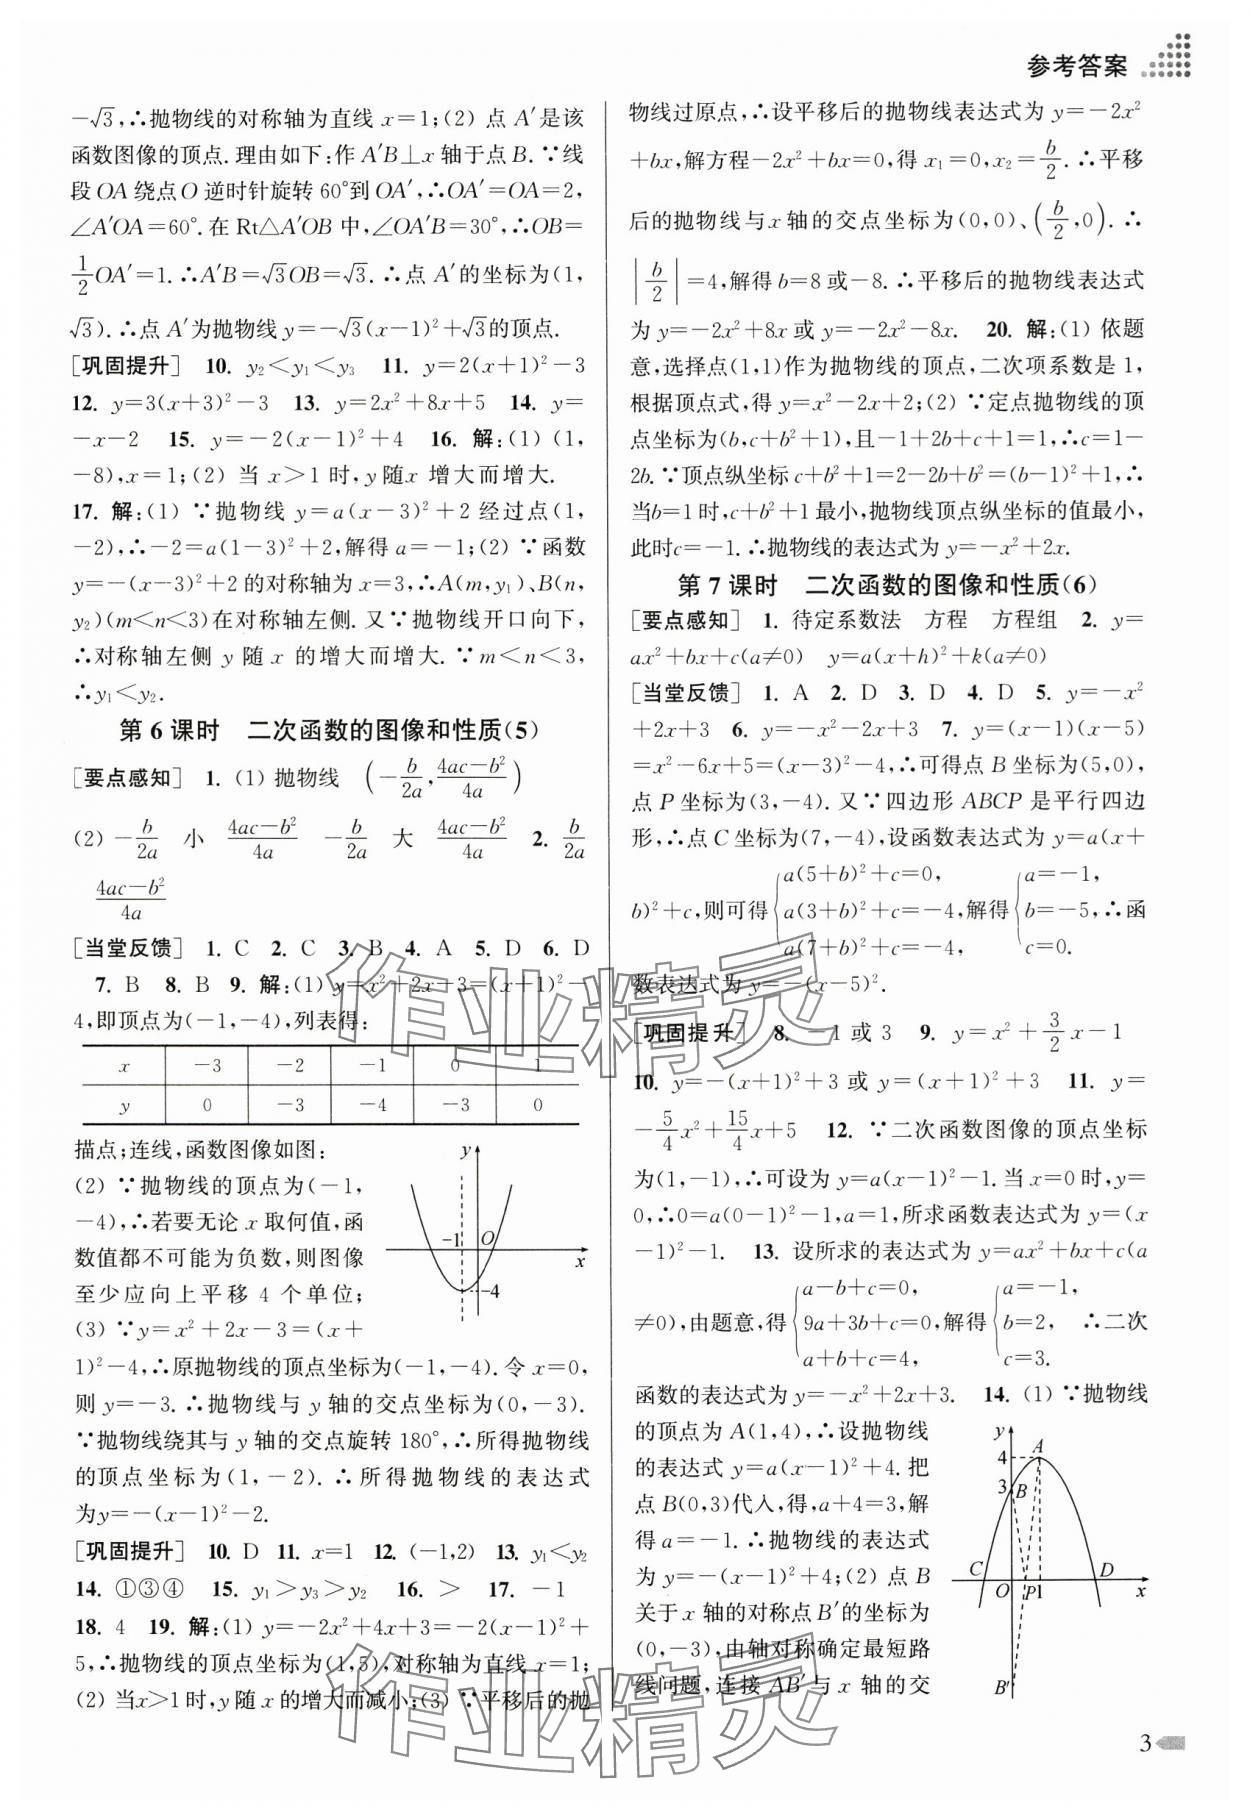 参考答案
－√3,∴抛物线的对称轴为直线 x＝1;(2) 点 A′是该
函数图像的顶点.理由如下:作 A′B⊥x 轴于点 B.∵线
段 OA 绕点 O 逆时针旋转 60°到 OA′,∴OA′＝OA＝2,
∠A′OA＝60°.在 Rt△A′OB 中,∠OA′B＝30°,∴OB＝
1/2 OA′＝1.∴A′B＝√3OB＝√3.∴点 A′的坐标为(1,
√3).∴点 A′为抛物线 y＝－√3(x－1)²＋√3的顶点.
[巩固提升] 10. y₂＜y₁＜y₃ 11. y＝2(x＋1)²－3
12. y＝3(x＋3)²－3 13. y＝2x²＋8x＋5 14. y＝
－x－2 15. y＝－2(x－1)²＋4 16. 解:(1) (1,
－8),x＝1;(2) 当 x＞1 时,y 随x 增大而增大.
17. 解:(1) ∵抛物线 y＝a(x－3)²＋2 经过点(1,
－2),∴－2＝a(1－3)²＋2,解得 a＝－1;(2) ∵函数
y＝－(x－3)²＋2 的对称轴为 x＝3,∴A(m,y₁)、B(n,
y₂)(m＜n＜3)在对称轴左侧.又∵抛物线开口向下,
∴对称轴左侧 y 随 x 的增大而增大.∵m＜n＜3,
∴y₁＜y₂.
第 6 课时 二次函数的图像和性质(5)
[要点感知] 1. (1) 抛物线 (－b/2a, (4ac－b²)/4a)
(2) －b/2a 小 (4ac－b²)/4a －b/2a 大 (4ac－b²)/4a 2. b/2a
(4ac－b²)/4a
[当堂反馈] 1. C 2. C 3. B 4. A 5. D 6. D
7. B 8. B 9. 解:(1) y＝x²＋2x－3＝(x＋1)²－
4,即顶点为(－1,－4),列表得:
x －3 －2 －1 0 1
y 0 －3 －4 －3 0
描点;连线,函数图像如图:
(2) ∵抛物线的顶点为(－1,
－4),∴若要无论 x 取何值,函
数值都不可能为负数,则图像
至少应向上平移 4 个单位;
(3) ∵y＝x²＋2x－3＝(x＋
y
－1 O
x
－4
1)²－4,∴原抛物线的顶点坐标为(－1,－4).令 x＝0,
则 y＝－3.∴抛物线与 y 轴的交点坐标为(0,－3).
∵抛物线绕其与 y 轴的交点旋转 180°,∴所得抛物线
的顶点坐标为(1,－2).∴所得抛物线的表达式
为y＝－(x－1)²－2.
[巩固提升] 10. D 11. x＝1 12. (－1,2) 13. y₁＜y₂
14. ①③④ 15. y₁＞y₃＞y₂ 16. ＞ 17. －1
18. 4 19. 解:(1) y＝－2x²＋4x＋3＝－2(x－1)²＋
5,∴抛物线的顶点坐标为(1,5),对称轴为直线 x＝1;
(2) 当x＞1时,y 随 x 的增大而减小;(3) ∵平移后的抛
物线过原点,∴设平移后的抛物线表达式为 y＝－2x²
＋bx,解方程－2x²＋bx＝0,得 x₁＝0,x₂＝b/2.∴平移
后的抛物线与 x 轴的交点坐标为(0,0)、(b/2,0).∴
|b/2|＝4,解得 b＝8 或－8.∴平移后的抛物线表达式
为 y＝－2x²＋8x 或 y＝－2x²－8x. 20. 解:(1) 依题
意,选择点(1,1)作为抛物线的顶点,二次项系数是 1,
根据顶点式,得 y＝x²－2x＋2;(2) ∵定点抛物线的顶
点坐标为(b,c＋b²＋1),且－1＋2b＋c＋1＝1,∴c＝1－
2b.∵顶点纵坐标 c＋b²＋1＝2－2b＋b²＝(b－1)²＋1,∴
当b＝1 时,c＋b²＋1 最小,抛物线顶点纵坐标的值最小,
此时c＝－1.∴抛物线的表达式为 y＝－x²＋2x.
第 7 课时 二次函数的图像和性质(6)
[要点感知] 1. 待定系数法 方程 方程组 2. y＝
ax²＋bx＋c(a≠0) y＝a(x＋h)²＋k(a≠0)
[当堂反馈] 1. A 2. D 3. D 4. D 5. y＝－x²
＋2x＋3 6. y＝－x²－2x＋3 7. y＝(x－1)(x－5)
＝x²－6x＋5＝(x－3)²－4,∴可得点 B 坐标为(5,0),
点 P 坐标为(3,－4).又∵四边形 ABCP 是平行四边
形,∴点 C 坐标为(7,－4),设函数表达式为 y＝a(x＋
b)²＋c,则可得{a(5＋b)²＋c＝0, a(3＋b)²＋c＝－4, a(7＋b)²＋c＝－4, 解得{a＝－1, b＝－5, c＝0. ∴函
数表达式为 y＝－(x－5)².
[巩固提升] 8. －1 或 3 9. y＝x²＋3/2 x－1
10. y＝－(x＋1)²＋3 或 y＝(x＋1)²＋3 11. y＝
－5/4 x²＋15/4 x＋5 12. ∵二次函数图像的顶点坐标
为(1,－1),∴可设为 y＝a(x－1)²－1.当 x＝0 时,y＝
0,∴0＝a(0－1)²－1,a＝1,所求函数表达式为 y＝(x
－1)²－1. 13. 设所求的表达式为 y＝ax²＋bx＋c(a
≠0),由题意,得{a－b＋c＝0, 9a＋3b＋c＝0, a＋b＋c＝4, 解得{a＝－1, b＝2, c＝3. ∴二次
函数的表达式为 y＝－x²＋2x＋3. 14. (1) ∵抛物线
的顶点为 A(1,4),∴设抛物线
的表达式 y＝a(x－1)²＋4.把
点 B(0,3)代入,得,a＋4＝3,解
得 a＝－1.∴抛物线的表达式
为 y＝－(x－1)²＋4;(2) 点 B
关于 x 轴的对称点 B′的坐标为
(0,－3),由轴对称确定最短路
线问题,连接 AB′与 x 轴的交
y
A
4
3 B
C D
O P 1 x
B′
3
作业精灵
作业精灵